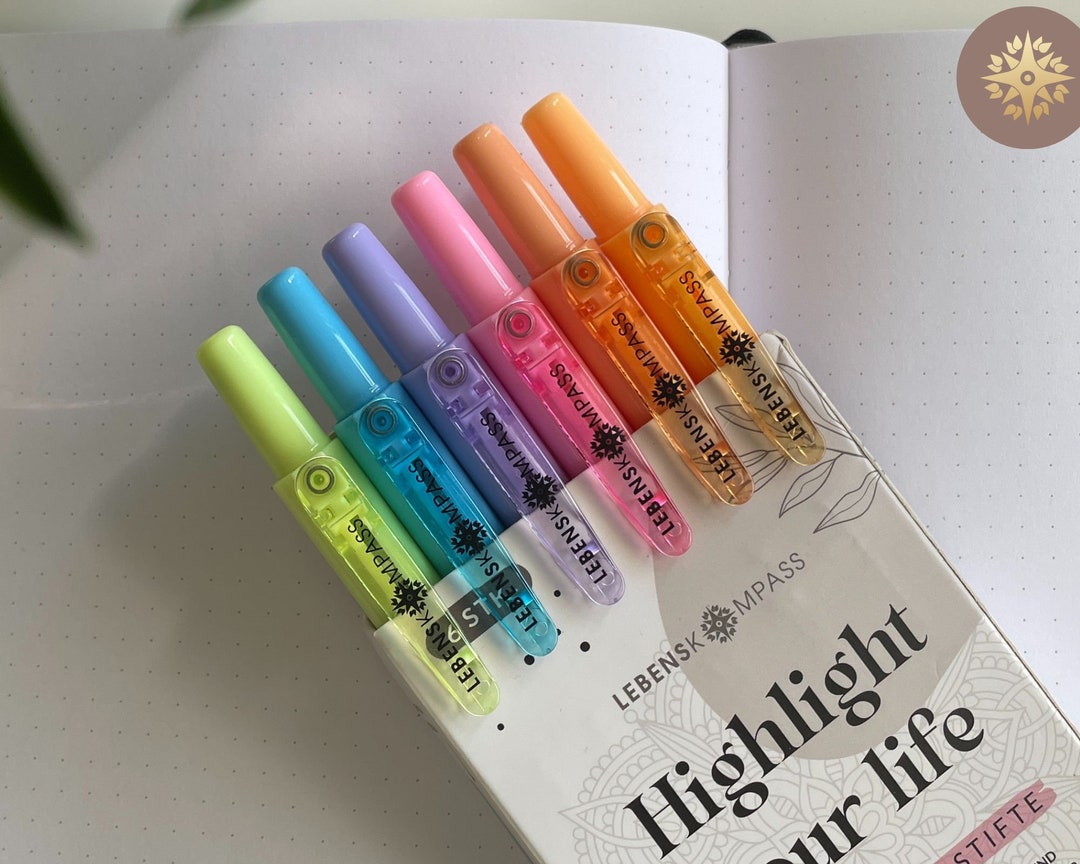 LEBENSKOMPASS
LEBENSKOMPASS
LEBENSKOMPASS
LEBENSKOMPASS
LEBENSKOMPASS
LEBENSKOMPASS
LEBENSKOMPASS
Highlight
our life
STIFTE